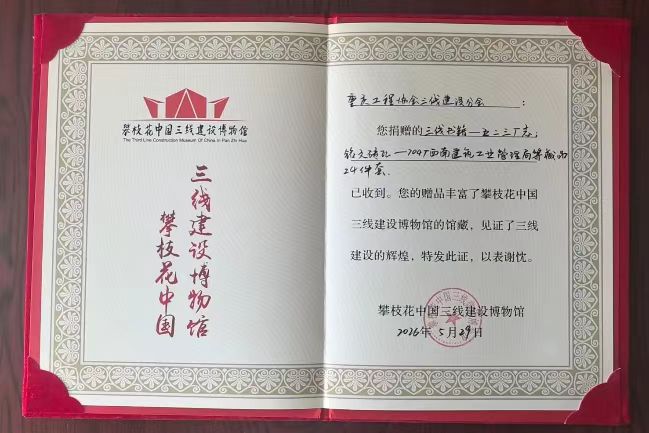 攀枝花中国三线建设博物馆
The Third Line Construction Museum Of China In Pan Zhi Hua
攀枝花中国
三线建设博物馆
重庆工程协会三线建设分会：
您捐赠的三线书籍—五二三厂志，
—709厂西南建筑工业管理局等藏品
24件套
已收到。您的赠品丰富了攀枝花中国
三线建设博物馆的馆藏，见证了三线
建设的辉煌，特发此证，以表谢忱。
攀枝花中国三线建设博物馆
2026年5月29日